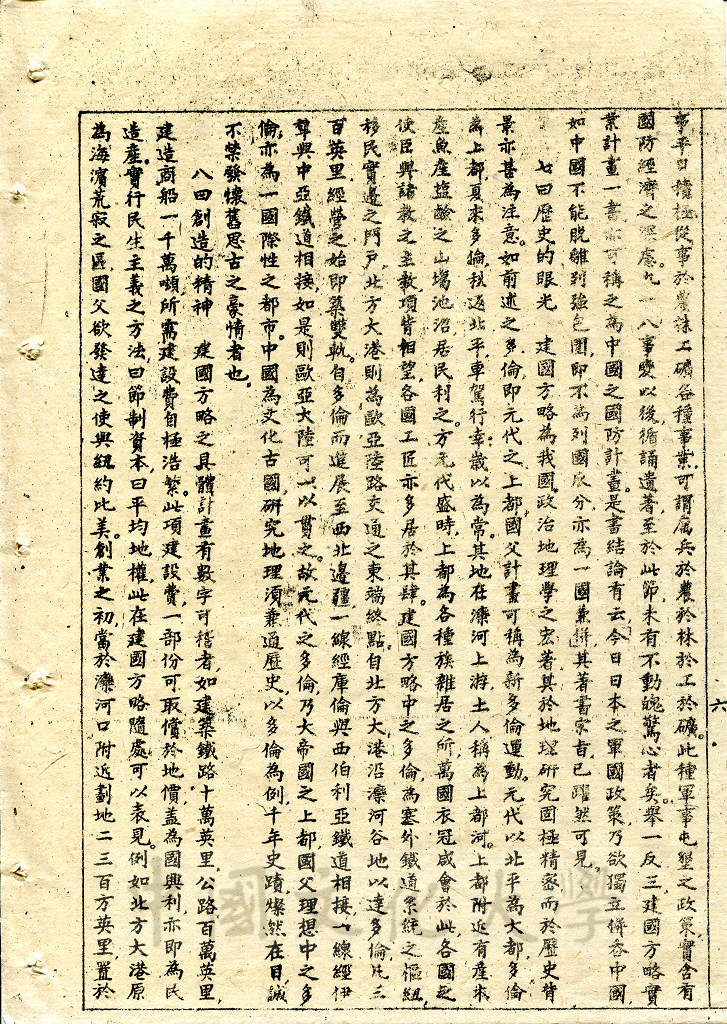 事平日積極從事於農林工礦各種事業，可謂寓兵於農於林於工於礦。此種軍事屯墾之政策，實含有
國防經濟之深慮。九一八事變以後，循誦遺著，至於此節，未有不動魄驚心者矣。舉一反三，建國方略實
業計畫一書，亦可稱之為中國之國防計畫。是書結論有云，今日日本之軍國政策，乃欲獨立併吞中國，
如中國不能脫離列強包圍，即不為列國瓜分，亦為一國兼併，其著書宗旨，已躍然可見。
七曰歷史的眼光　建國方略為我國政治地理學之宏著，其於地理研究固極精密，而於歷史背
景亦甚為注意。如前述之多倫，即元代之上都，國父計畫可稱為新多倫運動。元代以北平為大都，多倫
為上都，夏來多倫，秋返北平，車駕行幸，歲以為常。其地在灤河上游，土人稱為上都河。上都附近有產米
產魚產塩鹼之山場池沼，居民利之。方元代盛時，上都為各種族雜居之所，萬國衣冠咸會於此，各國之
使臣與諸教之主教項背相望，各國工匠亦多居於其肆。建國方略中之多倫，為塞外鐵道系統之樞紐，
移民實邊之門戶，北方大港則為歐亞陸路交通之東端終點。自北方大港沿灤河谷地以達多倫，凡三
百英里，經營之始，即築雙軌。自多倫而進展至西北邊疆，一線經庫倫與西伯利亞鐵道相接，一線經伊
犂與中亞鐵道相接，如是則歐亞大陸可一以貫之。故元代之多倫，乃大帝國之上都，國父理想中之多
倫，亦為一國際性之都市。中國為文化古國，研究地理須兼通歷史。以多倫為例，千年史蹟，燦然在目，誠
不禁發懷舊思古之豪情者也。
八曰創造的精神　建國方略之具體計畫有數字可稽者，如建築鐵路十萬英里，公路百萬英里，
建造商船一千萬噸，所需建設費自極浩繁。此項建設費，一部份可取償於地價，蓋為國興利，亦即為民
造產。實行民生主義之方法，曰節制資本，曰平均地權，此在建國方略隨處可以表見。例如北方大港原
為海濱荒寂之區，國父欲發達之使與紐約比美。創業之初，當於灤河口附近劃地二三百方英里，置於
六
中國文化大學